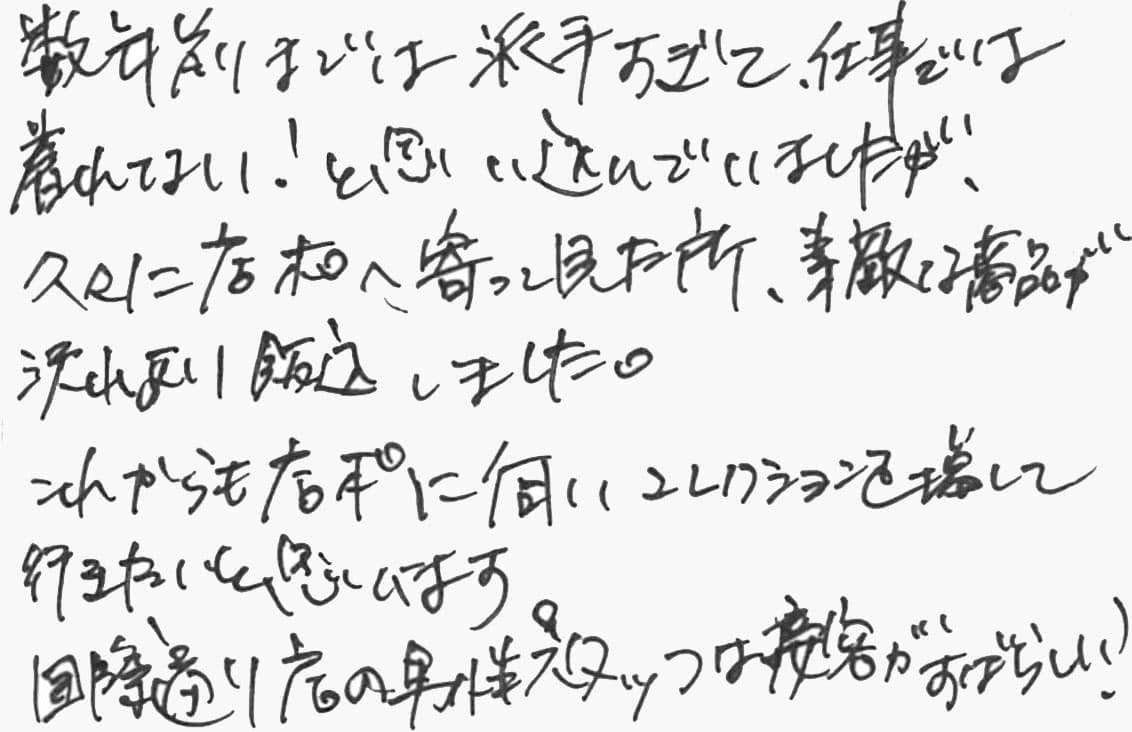 数年前までは派手すぎて、仕事では
着れてない!と思い込んでいましたが、
久々に店ポへ寄って見た所、素敵な商品が
沢れ有り 飯込しました。
これからも店ポに伺い コレクションを増して
行きたいと思います。
国際通り店の男性スタッフは接客がすばらしい!